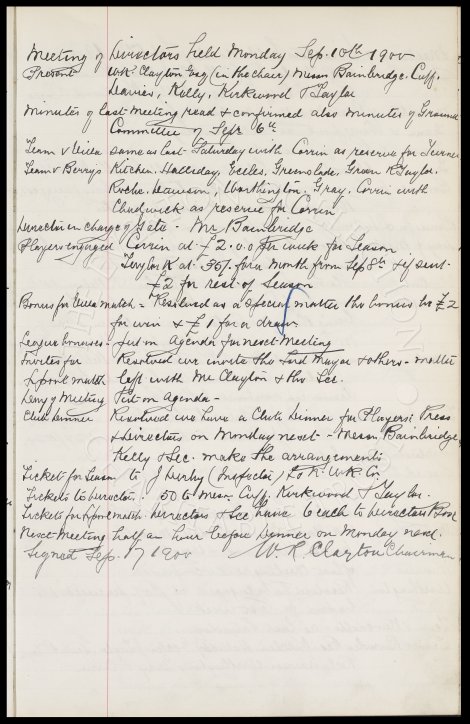 Meeting of Directors held Monday Sep. 10th 1900
Present W.R. Clayton Esq (in the chair) Messrs Bainbridge. Cuff.
Davies, Kelly, Kirkwood & Taylor
Minutes of last meeting read & confirmed also minutes of Ground
Committee of Sept 6th
Team v Villa same as last Saturday with Corrin as reserve for Turner
Team v Berrys Kitchen. Halliday, Eccles, Greenslade, Green R Taylor.
Roche. Dawson, Worthington. Gray. Corrin with
Chadwick as reserve for Corrin
Director in charge of Gate - Mr Bainbridge
Players engaged Corrin at £2.0.0 per week for season
Taylor R at 35/- for a month from Sep 8th & if suit.
£2 for rest of season
Bonus for Villa match - Resolved as a special matter the bonus be £2
for win & £1 for a draw
League bonuses - put on Agenda for next meeting
Invites for Resolved we invite the Lord Mayor & others - matter
L'pool match left with Mr Clayton & the Sec.
Deny of Meeting Put on Agenda -
Club Dinner Resolved we have a Club Dinner for Players, Press
& Directors on Monday next - Messrs Bainbridge,
Kelly & Sec. make the arrangements
Ticket for Season to J Derby (Instructor) to R. W.R. Co
Tickets to Directors. 50 to Messrs. Cuff, Kirkwood & Taylor.
Tickets for L'pool match Directors & Sec have 6 each to Directors Box
Next Meeting half an hour before Dinner on Monday next.
Signed Sep. 17 1900 W. R. Clayton Chairman